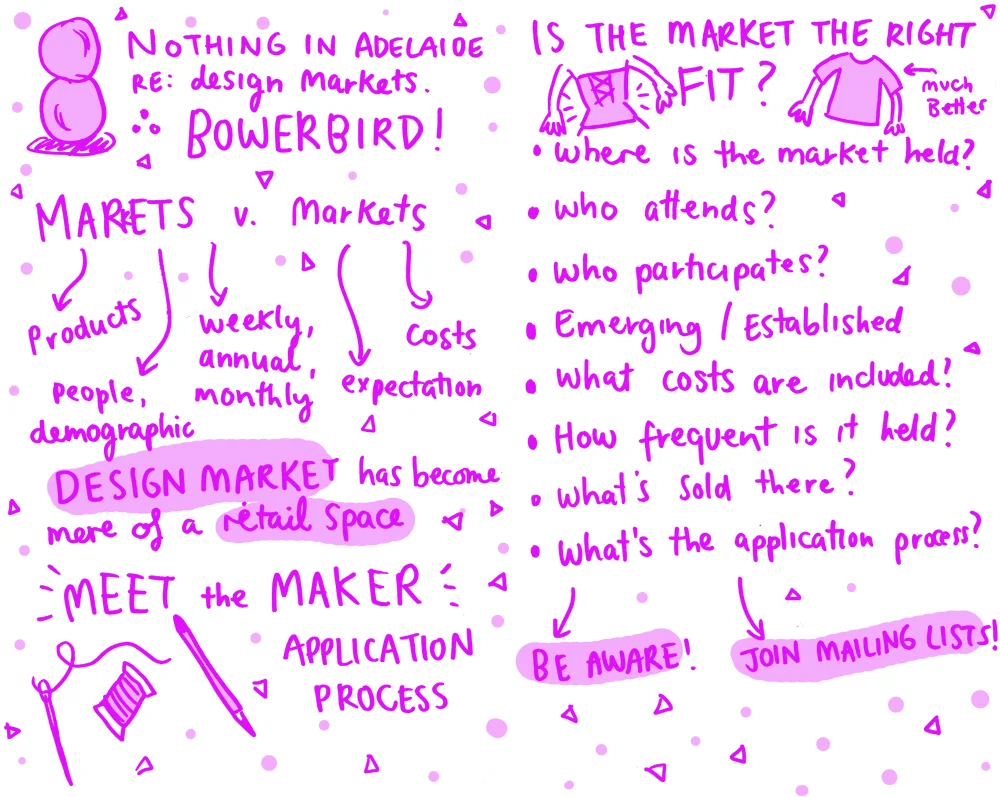 NOTHING IN ADELAIDE
RE: design Markets.
∴ BOWERBIRD!
MARKETS v. Markets
Products
People,
demographic
weekly,
annual,
monthly
expectation
Costs
DESIGN MARKET has become
more of a retail space
MEET the MAKER
APPLICATION
PROCESS
IS THE MARKET THE RIGHT
FIT?
much
Better
• where is the market held?
• who attends?
• who participates?
• Emerging / Established
• what costs are included?
• How frequent is it held?
• what's sold there?
• what's the application process?
BE AWARE!
JOIN MAILING LISTS!